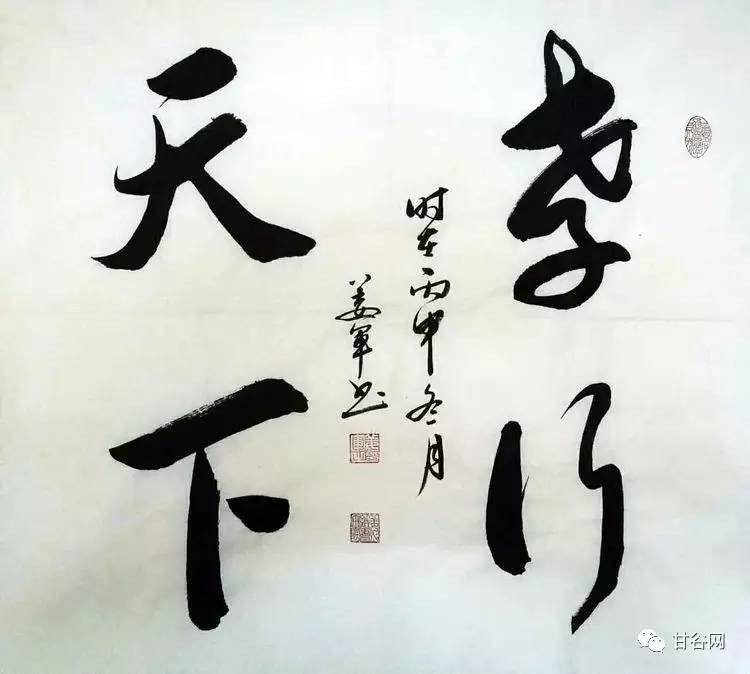 孝行
天下
时在丙申冬月
姜军书
甘谷网